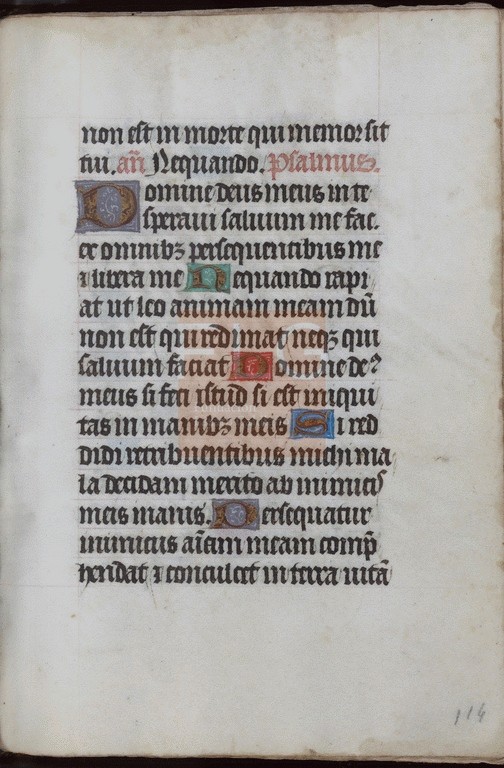 non est in morte qui memor sit
tui. an̄ Nequando. Psalmus.
Domine deus meus in te
speraui saluum me fac.
ex omnibꝫ persequentibus me
⁊ libera me Nequando rapi
at ut leo animam meam dū
non est qui redimat neqꝫ qui
saluum faciat Domine de⁹
meus si feci istud si est iniqui
tas in manibꝫ meis Si red
didi retribuentibus michi ma
la decidam merito ab inimicis
meis inanis. Persequatur
inimicus aīam meam comp̄
hendat ⁊ conculcet in terra uitā
114